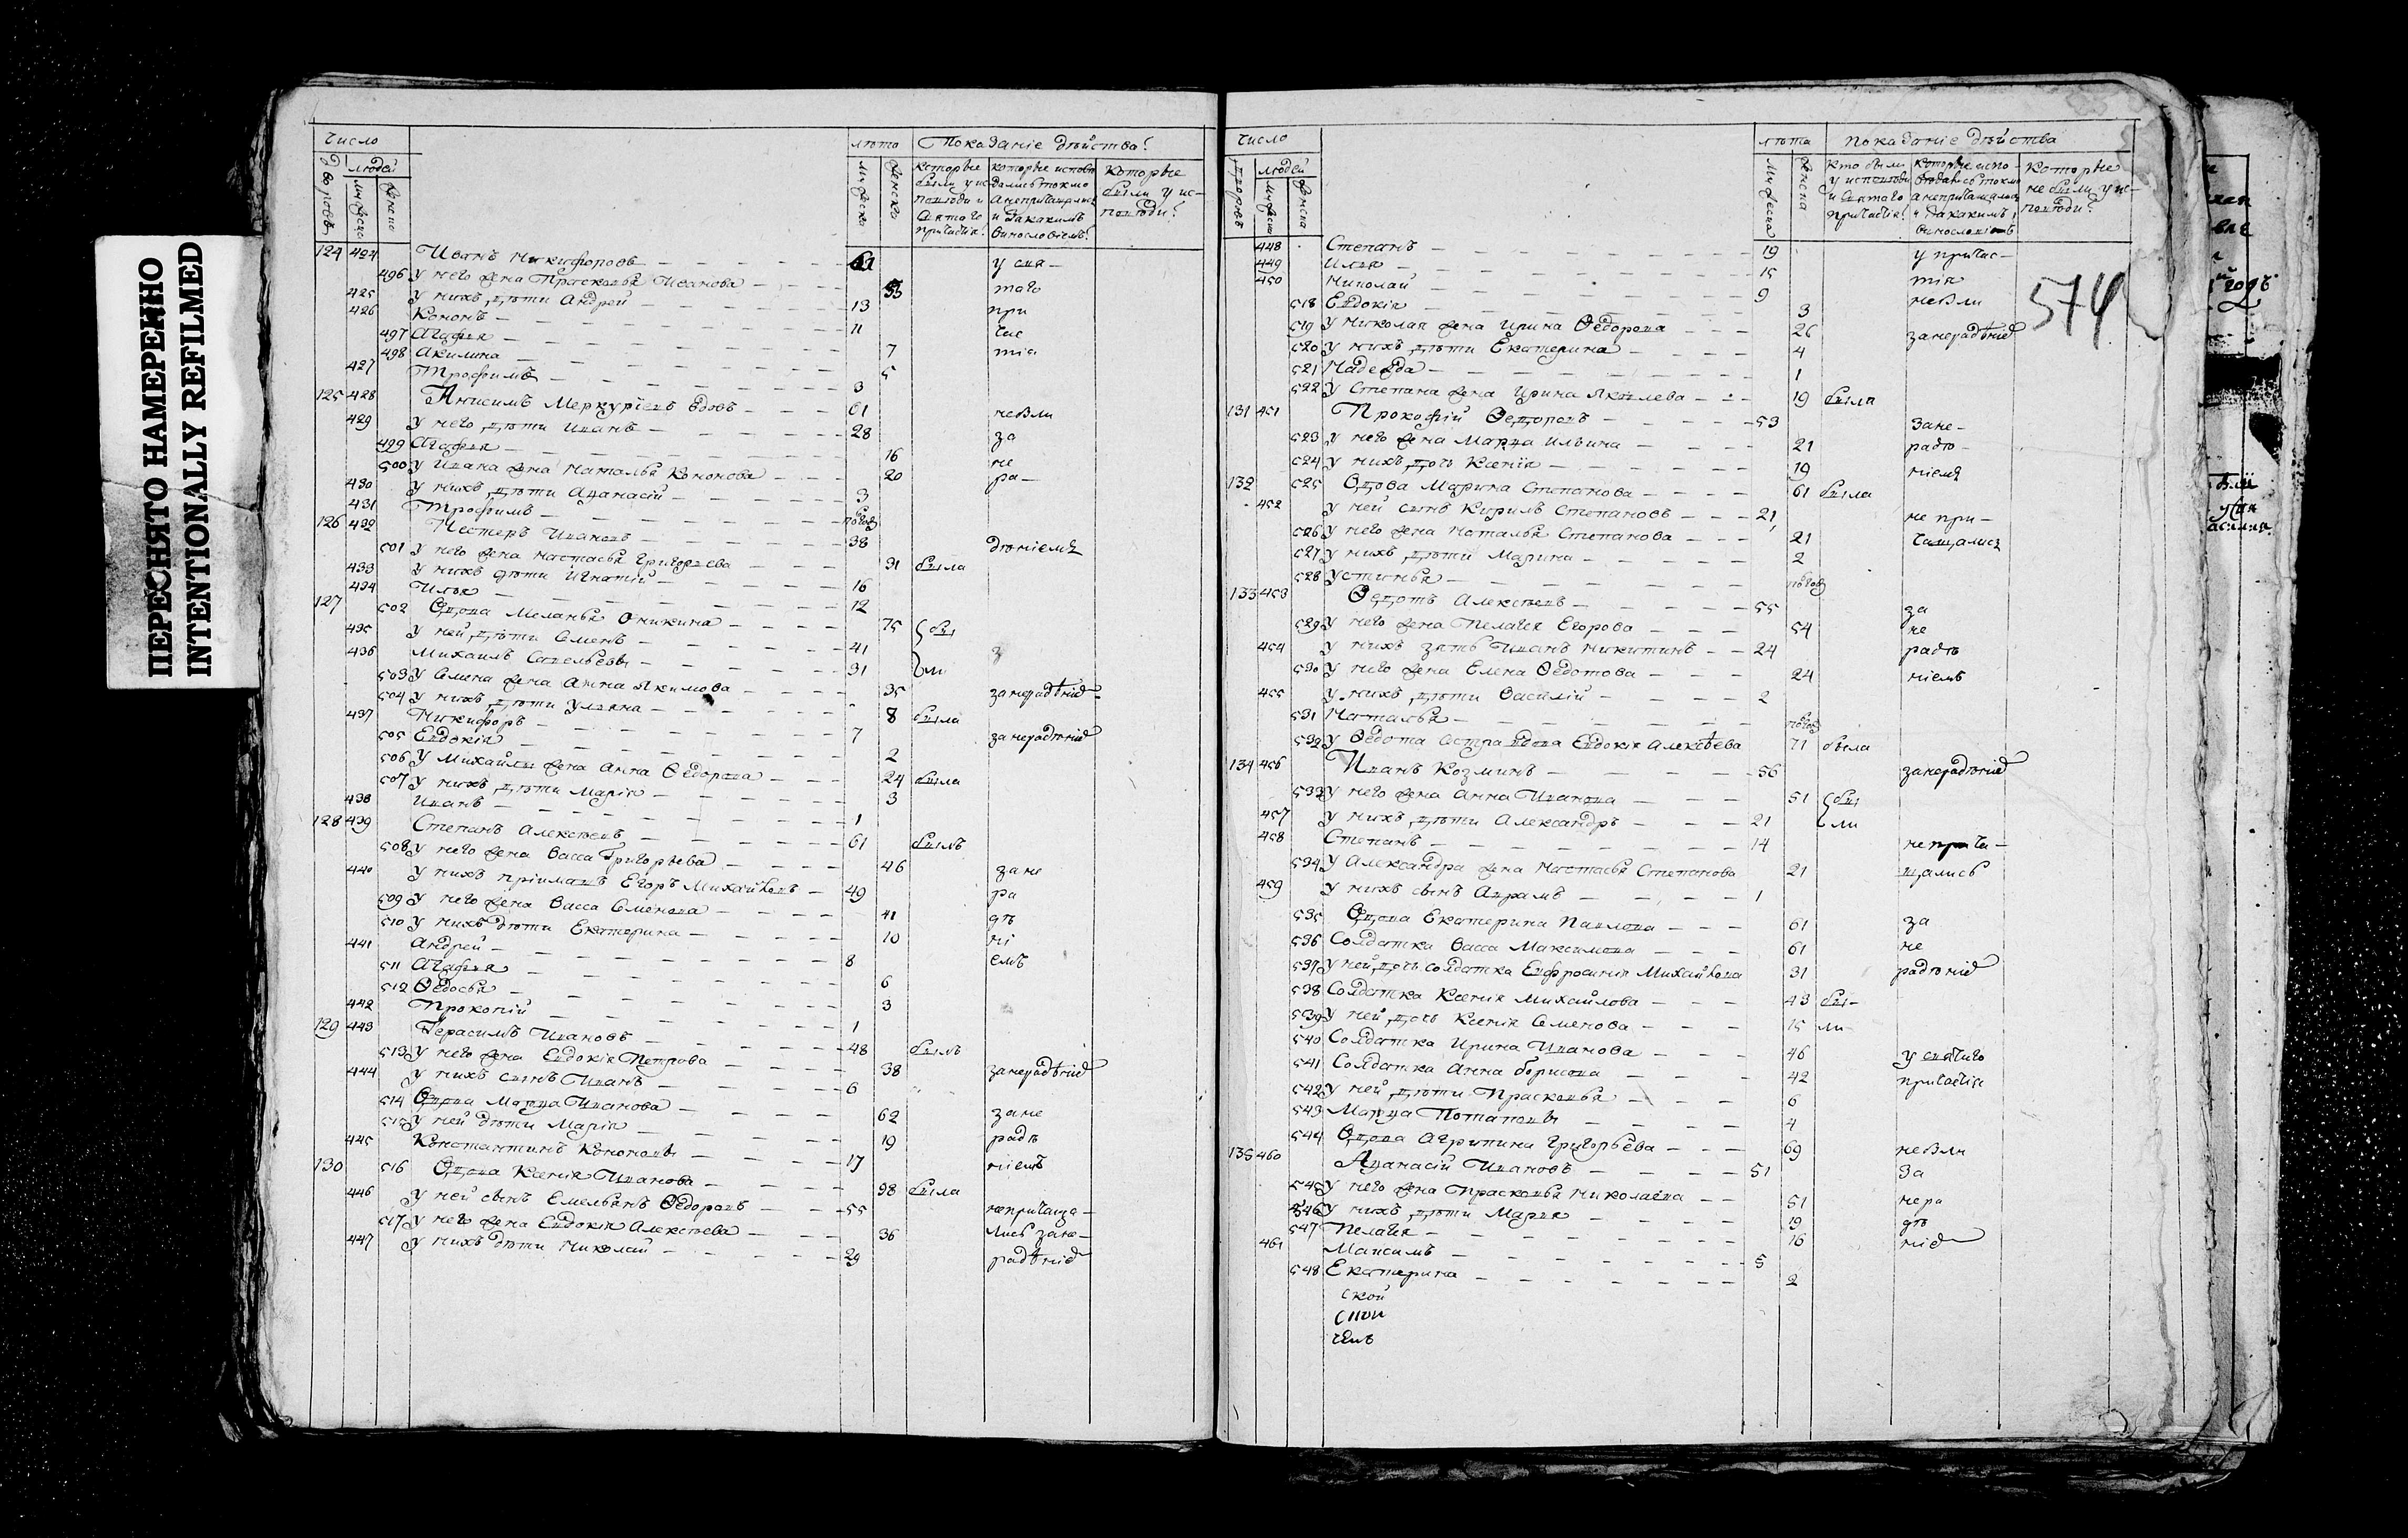 ПЕРЕСНЯТО НАМЕРЕННО
INTENTIONALLY REFILMED
число лѣта Показаніе дѣйства
дворовъ людей
мужеска женска мужеска женско
которые были у исповѣди и святаго причастія
которые исповѣдались токмо а непричащались и закакимъ винословіемъ
которые были у исповѣди
124 424 Иванъ Никифоровъ 61 у свя-
496 У него жена Прасковья Иванова 53 таго
425 У нихъ дѣти Андрей 13 при
426 Кононъ 11 час
497 Агафья 7 тія
498 Акилина 5
427 Трофимъ 3
125 428 Анисимъ Меркурьевъ вдовъ 61 небыли
429 У него дѣти Иванъ 28 за
499 Агафья 16 не
500 У Ивана жена Наталья Кононова 20 ра-
430 У нихъ дѣти Афанасій 3
431 Трофимъ
126 432 Нестеръ Ивановъ 38 дѣніемъ
501 У него жена Настасья Григорьева 31 была
433 У нихъ дѣти Игнатій 16
434 Илья 12
127 502 Вдова Меланья Оникина 75 бы
435 У ней дѣти Семенъ 41
436 Михаилъ Савельевы 31 ли
503 У Семена жена Анна Якимова 35 занерадѣніе
504 У нихъ дѣти Ульяна 8 была
437 Никифоръ 7 занерадѣніе
505 Евдокія 2
506 У Михайлы жена Анна Ѳедорова 24 была
507 У нихъ дѣти Марія 3
438 Иванъ 1
128 439 Степанъ Алексѣевъ 61 былъ
508 У него жена Васса Григорьева 46 зане
440 У нихъ пріимашъ Егоръ Михайловъ 49 ра
509 У него жена Васса Семенова 41 дѣ
510 У нихъ дѣти Екатерина 10 ні
441 Андрей 8 емъ
511 Агафья 6
512 Ѳедосья 3
442 Прокопій 1
129 443 Герасимъ Ивановъ 48 былъ
513 У него жена Евдокія Петрова 38 занерадѣніе
444 У нихъ сынъ Иванъ 6
514 Вдова Марѳа Иванова 62 зане
515 У ней дѣти Марія 19 радѣ
445 Константинъ Кононовы 17 ніемъ
130 516 Вдова Ксенія Иванова 98 была
446 У ней сынъ Емельянъ Ѳедоровъ 55 непричаща-
517 У него жена Евдокія Алексѣева 36 лись зане-
447 У нихъ дѣти Николай 29 радѣніе
число лѣта показаніе дѣйства
дворовъ людей
мужеска женска мужеска женска
кто были у исповѣди и святаго причастія
которые исповѣдались токмо а непричащались и закакимъ винословіемъ
которые не были у исповѣди
574
448 Степанъ 19 у причас-
449 Илья 15 тія
450 Николай 9 небыли
518 Евдокія 3
519 У Николая жена Ирина Ѳедорова 26 занерадѣніе
520 У нихъ дѣти Екатерина 4
521 Надежда 1
522 У Степана жена Ирина Яковлева 19 была
131 451 Прокофій Ѳедоровъ 53 зане-
523 У него жена Марѳа Ильина 21 радѣ-
524 У нихъ дочь Ксенія 19 ніемъ
132 525 Вдова Марина Степанова 61 была
452 У ней сынъ Кирилъ Степановъ 21 не при-
526 У него жена Наталья Степанова 21 чащались
527 У нихъ дѣти Марина 2
528 Устинья
133 453 Ѳедотъ Алексѣевъ 55 за
529 У него жена Пелагея Егорова 54 не
454 У нихъ зять Иванъ Никитинъ 24 радѣ
530 У него жена Елена Ѳедотова 24 ніемъ
455 У нихъ дѣти Василій 2
531 Наталья
532 У Ѳедота сестра вдова Евдокія Алексѣева 71 была
134 456 Иванъ Козминъ 56 занерадѣніе
533 У него жена Анна Иванова 51 бы
457 У нихъ дѣти Александръ 21 ли
458 Степанъ 14 неприча-
534 У Александра жена Настасья Степанова 21 щались
459 У нихъ сынъ Аврамъ 1
535 Вдова Екатерина Павлова 61 за
536 Солдатка Васса Максимова 61 не
537 У ней дочь солдатка Ефросинія Михайлова 31 радѣніе
538 Солдатка Ксенія Михайлова 43 бы-
539 У ней дочь Ксенія Семенова 15 ли
540 Солдатка Ирина Иванова 46 у святаго
541 Солдатка Анна Борисова 42 причастія
542 У ней дѣти Прасковья 6
543 Марѳа Потаповы 4
544 Вдова Агрипина Григорьева 69 небыли
135 460 Афанасій Ивановъ 51 За
545 У него жена Прасковья Николаева 51 нера
546 У нихъ дѣти Марья 19 дѣ
547 Пелагея 16 ніе
461 Максимъ 5
548 Екатерина 2
ской